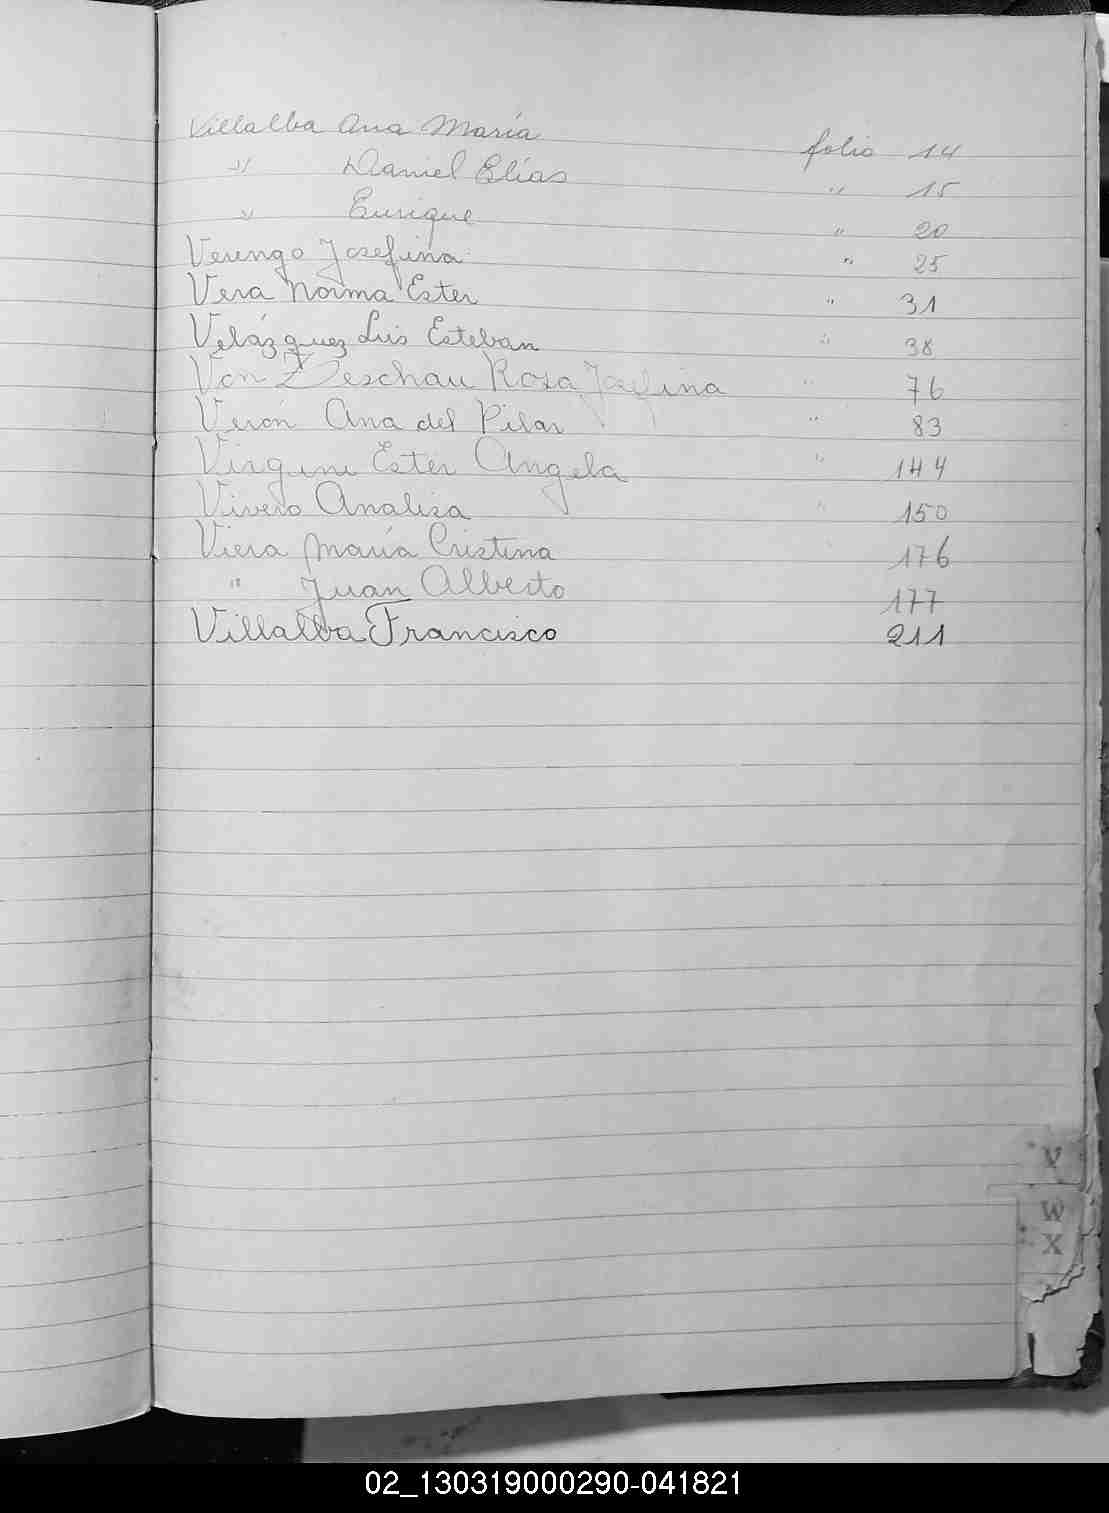 Villalba Ana María folio 14
" Daniel Elías " 15
" Enrique " 20
Verengo Josefina " 25
Vera Norma Ester " 31
Velázquez Luis Esteban " 38
Von Zeschau Rosa Josefina " 76
Verón Ana del Pilar " 83
Virgini Ester Angela " 144
Vivero Analisa " 150
Viera María Cristina 176
" Juan Alberto 177
Villalba Francisco 211
V
W
X
02_130319000290-041821